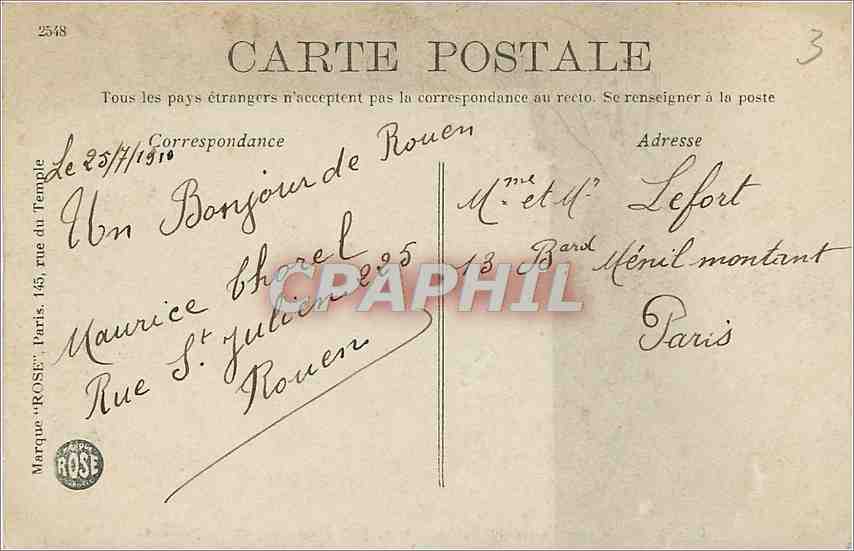 2548
3
CARTE POSTALE
Tous les pays étrangers n'acceptent pas la correspondance au recto. Se renseigner à la poste
Correspondance
Le 25/7/1910
Un Bonjour de Rouen
Maurice Thorel
Rue St Julien 225
Rouen
Adresse
Mme et Mr Lefort
13 Bard Ménil montant
Paris
CPAPHIL
Marque "ROSE", Paris. 145, rue du Temple
ROSE